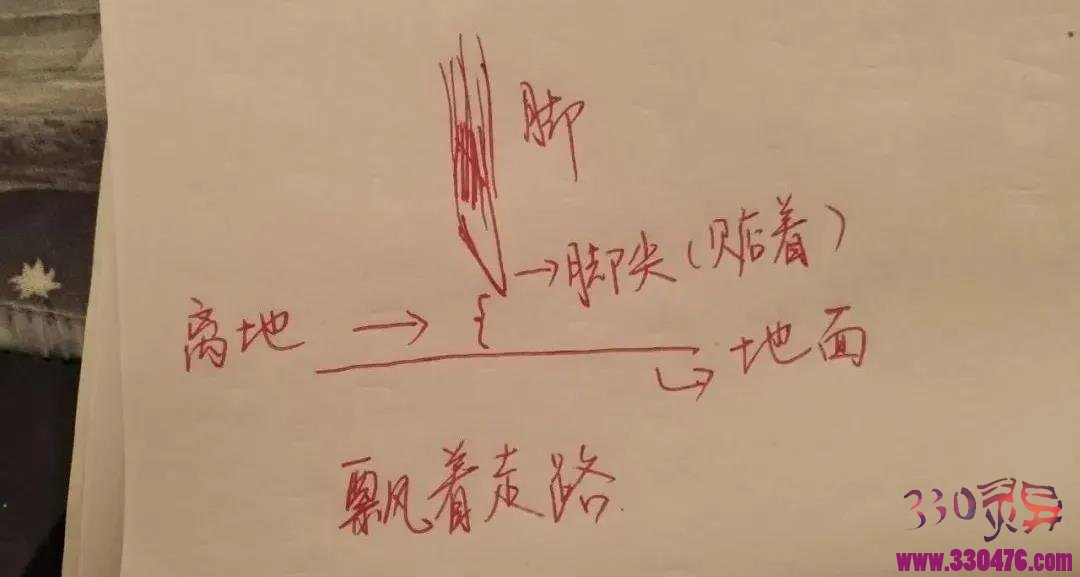 脚
→脚尖（贴着）
离地 →
地面
飘着走路
330灵异
www.330476.com